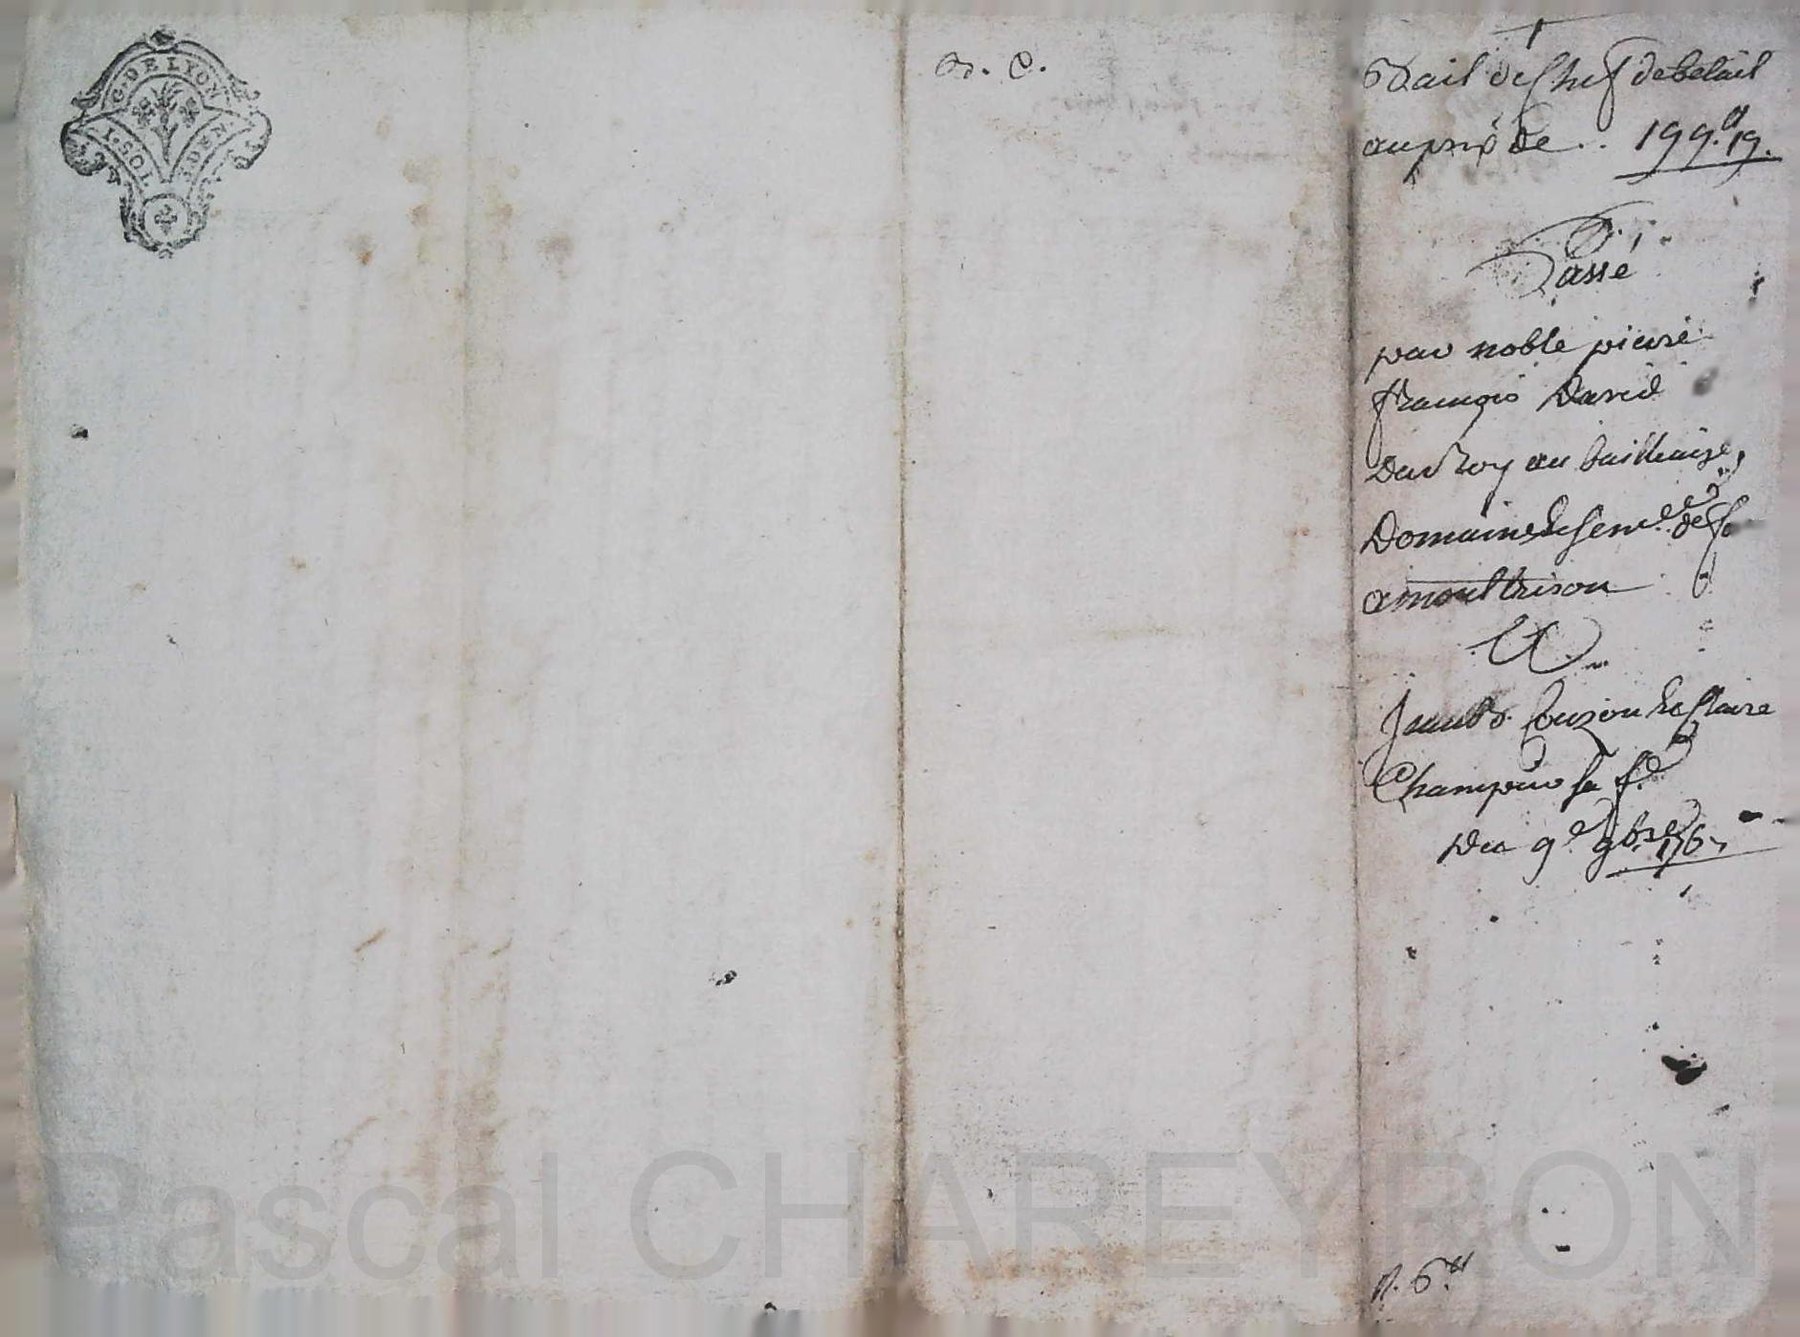 G. DE LYON
1. SOL
DEN
Bail de Chef de betail
au prix de .. 199.ᵗᵗ 19.
Passé
par noble pierre
françois David
du Roy au bailliage,
Domaine de
a montbrison
Et
Jean Couzon de Claire
Champ sa f.
Du 9ᵉ 9bre 176
n. 6.
Pascal CHAREYRON